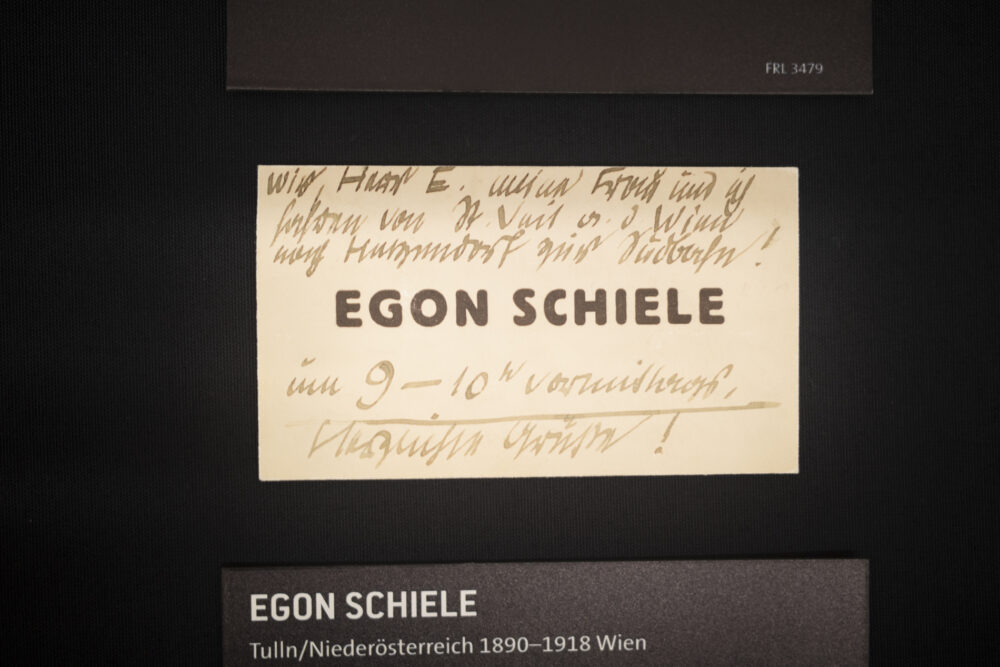 FRL 3479
wir, Herr E. meine Frau und ich
fahren von St. Veit a. d Wien
nach Hetzendorf zur Südbahn!
EGON SCHIELE
um 9–10ʰ vormittags,
Herzliche Grüße!
EGON SCHIELE
Tulln/Niederösterreich 1890–1918 Wien